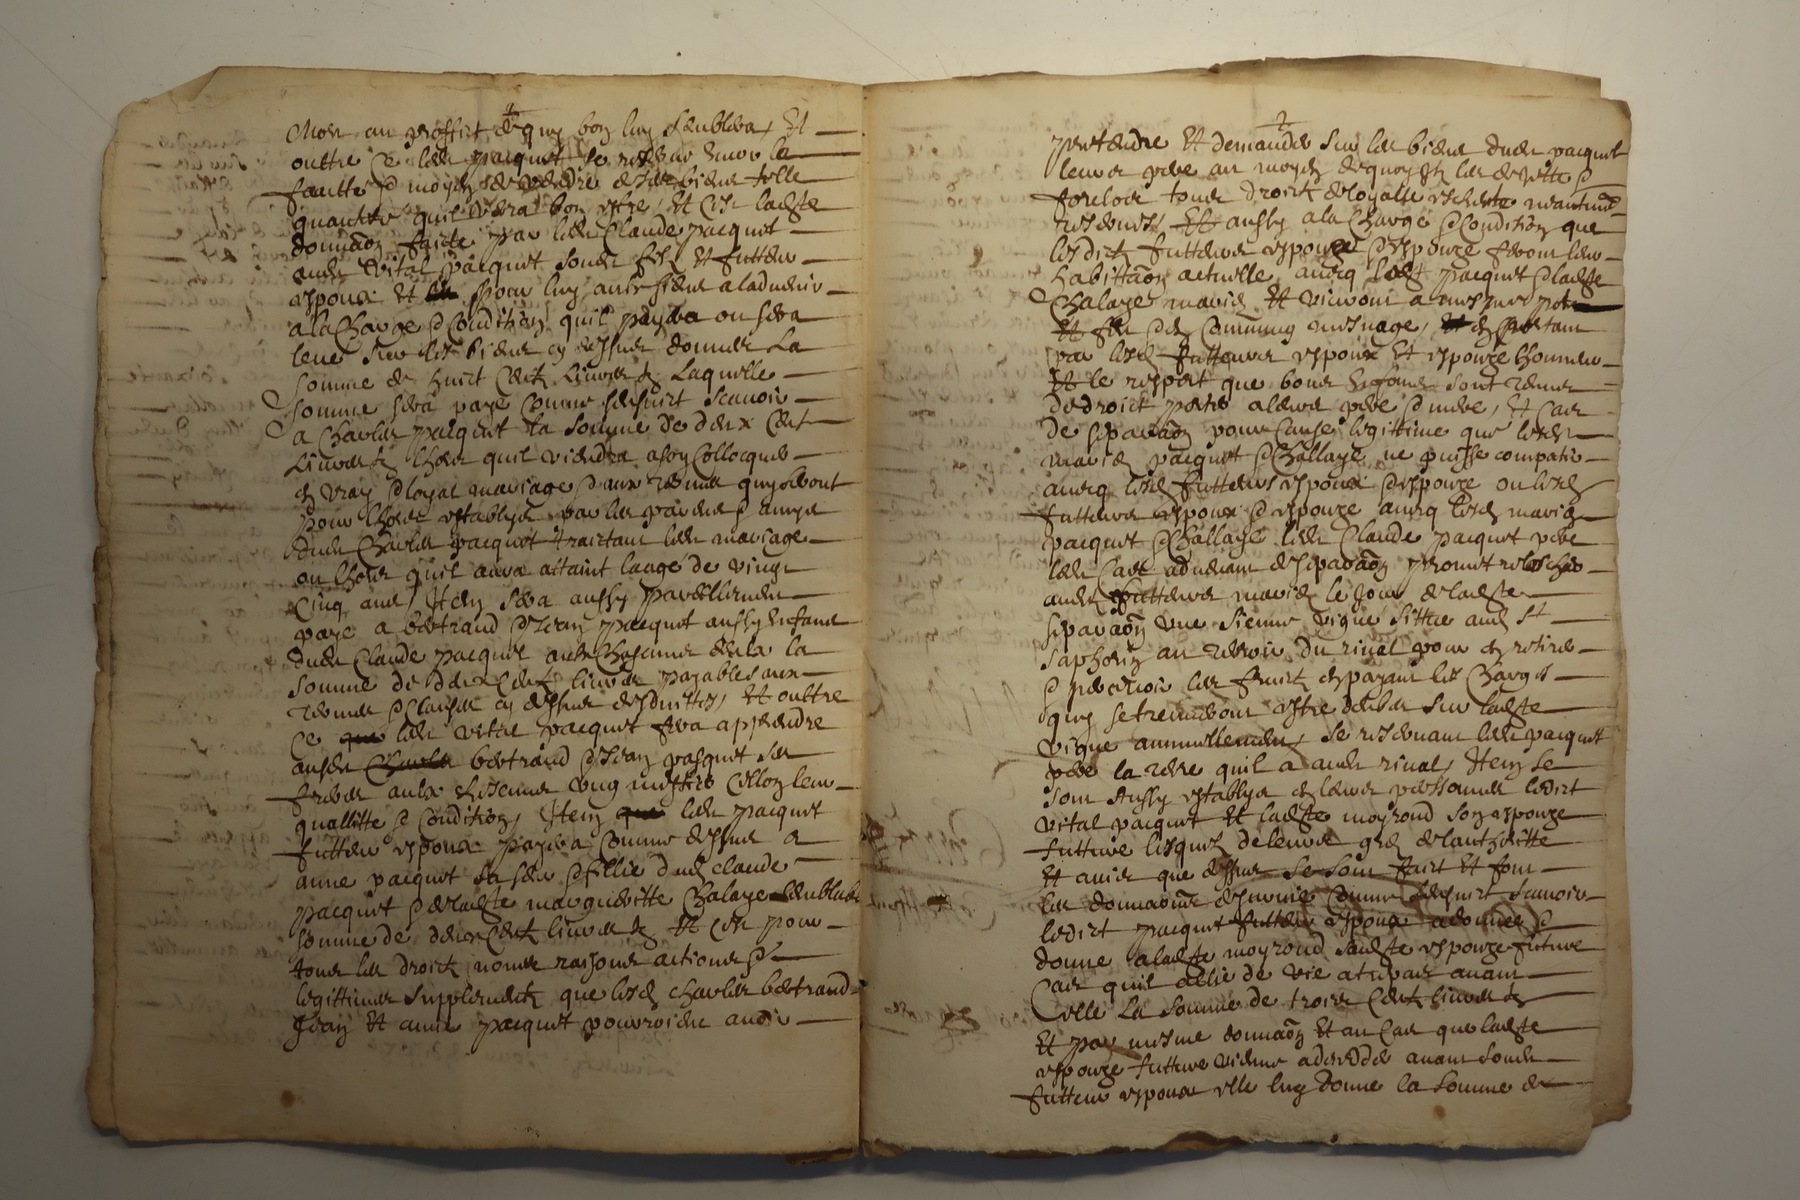 Mort au proffict de quy bon luy semblera, Et
outtre ce ledt pacquet se reserve encor la
faculté & moyen de vendre desdts biens telle
quantité quil verra bon estre, Et c'est ladte
donnaõn faicte par ledt Claude pacquet
audt Vital pacquet sondt filz Et futteur
espoux Et pour luy aux siens a ladvenir
a la Charge & Condition quil payera ou sera
levé sur les biens cy dessus donnés La
somme de huict Cents Livres tz Laquelle
somme sera payé comme sensuict scavoir
a Charles pacquet la somme de deux Cents
Livres tz lhors quil viendra a soy Collocquer
en vray & loyal mariage & aux termes quy seront
pour lhors establys par les parens & amys
dudt Charles pacquet traictant ledt mariage
ou lhors quil aura attaint laage de vingt
Cinq ans, Item sera aussy pareillement
payé a bertrand & Jean pacquet aussy enfans
dudt Claude pacquet a un Chascun deulx la
somme de deux Cents livres payables aux
termes & Clauses cy dessus desduittes, Et outtre
Ce que ledt vital pacquet fera apprendre
ausdts Charles bertrand & Jean pacquet ses
freres a un chacun ung mestier cellon leur
quallitté & Condition, Item que ledt pacquet
futteur espoux payera comme dessus a
anne pacquet sa seur & fillie dudt claude
pacquet & de ladte margueritte Chalaye semblable
somme de deux Cents livres tz Et c'est pour
tous les droicts noms raisons actions &
legittimes supplements que lesdts charles bertrand
Jean Et anne pacquet pourroient avoir
2
pretendre Et demander sur les biens dudt pacquet
leur pere au moyen de quoy Ilz les dejette &
forclos tous droicts de loyalle escheute neantmoins
reservés, Et aussy a la Charge & Condition que
lesdicts futteurs espoux & espouze feront leur
habittaõn actuelle avecq ledt pacquet & ladte
Chalaye mariés Et vivront a mesme pot
Et feu & en Commung mesnage, Et en portant
par lesdts futteurs espoux Et espouze lhonneur
Et le respect que bons Enfans sont tenus
de droict porter a leurs pere & mere, Et Cas
de separaõn pour Cause legittime que lesdts
mariés pacquet & Challaye ne puisse compatir
avecq lesdts futteurs espoux & espouze ou lesdts
futteurs espoux & espouze avecq lesdts mariés
pacquet & Challaye ledt Claude pacquet pere
ledt Cas advenant de separaõn promet relascher
audts futteurs mariés le Jour de ladte
separaõn une sienne vigne sittue audt St
Saphorin au terroir du rival pour en retirer
& percevoir les fruicts en payant les Charges
quy se treuveront estre deubes sur ladte
vigne annuellement, se reservant ledt pacquet
pere la terre quil a audt rival, Item se
sont Aussy establys en leurs personnes ledict
vital pacquet Et ladte moyroud son espouze
futture lesquels de leurs gré de lauthoritté
Et advis que dessus se sont faict Et font
les donnaõns de survie comme sensuict scavoir
ledict pacquet futteur espoux a donné &
donne a ladte moyroud sadte espouze futture
Cas quil aille de vie a trespas avant
Celle La somme de trois Cents livres tz
Et par mesme donnaõn Et au Cas que ladte
espouze futture vienne a deceder avant sondt
futteur espoux elle luy donne la somme de